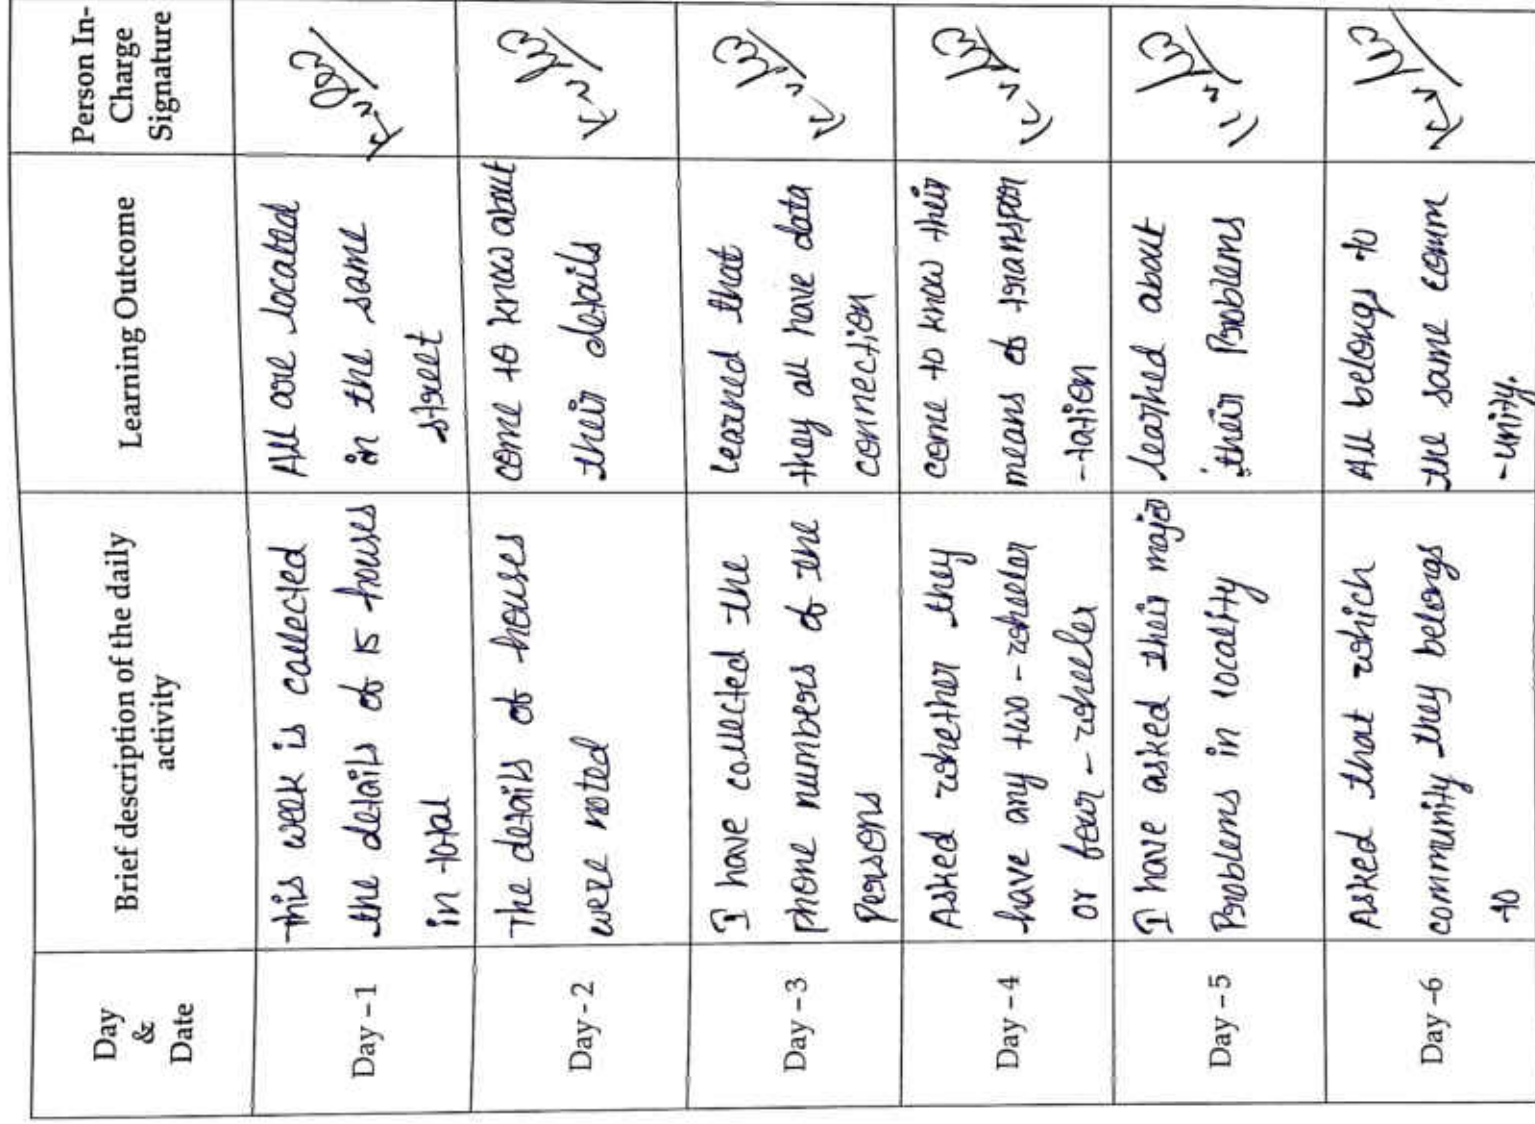 Day
&
Date
Brief description of the daily
activity
Learning Outcome
Person In-
Charge
Signature
Day – 1
This week is collected
the details of 15 houses
in total
All are located
in the same
street
Day - 2
The details of houses
were noted
come to know about
their details
Day – 3
I have collected the
phone numbers of the
Persons
Learned that
they all have data
connection
Day – 4
Asked whether they
have any two - wheeler
or four - wheeler
come to know their
means of transpor
-tation
Day – 5
I have asked their major
Problems in locality
learned about
their Problems
Day –6
Asked that which
community they belongs
to
All belongs to
the same comm
-unity.